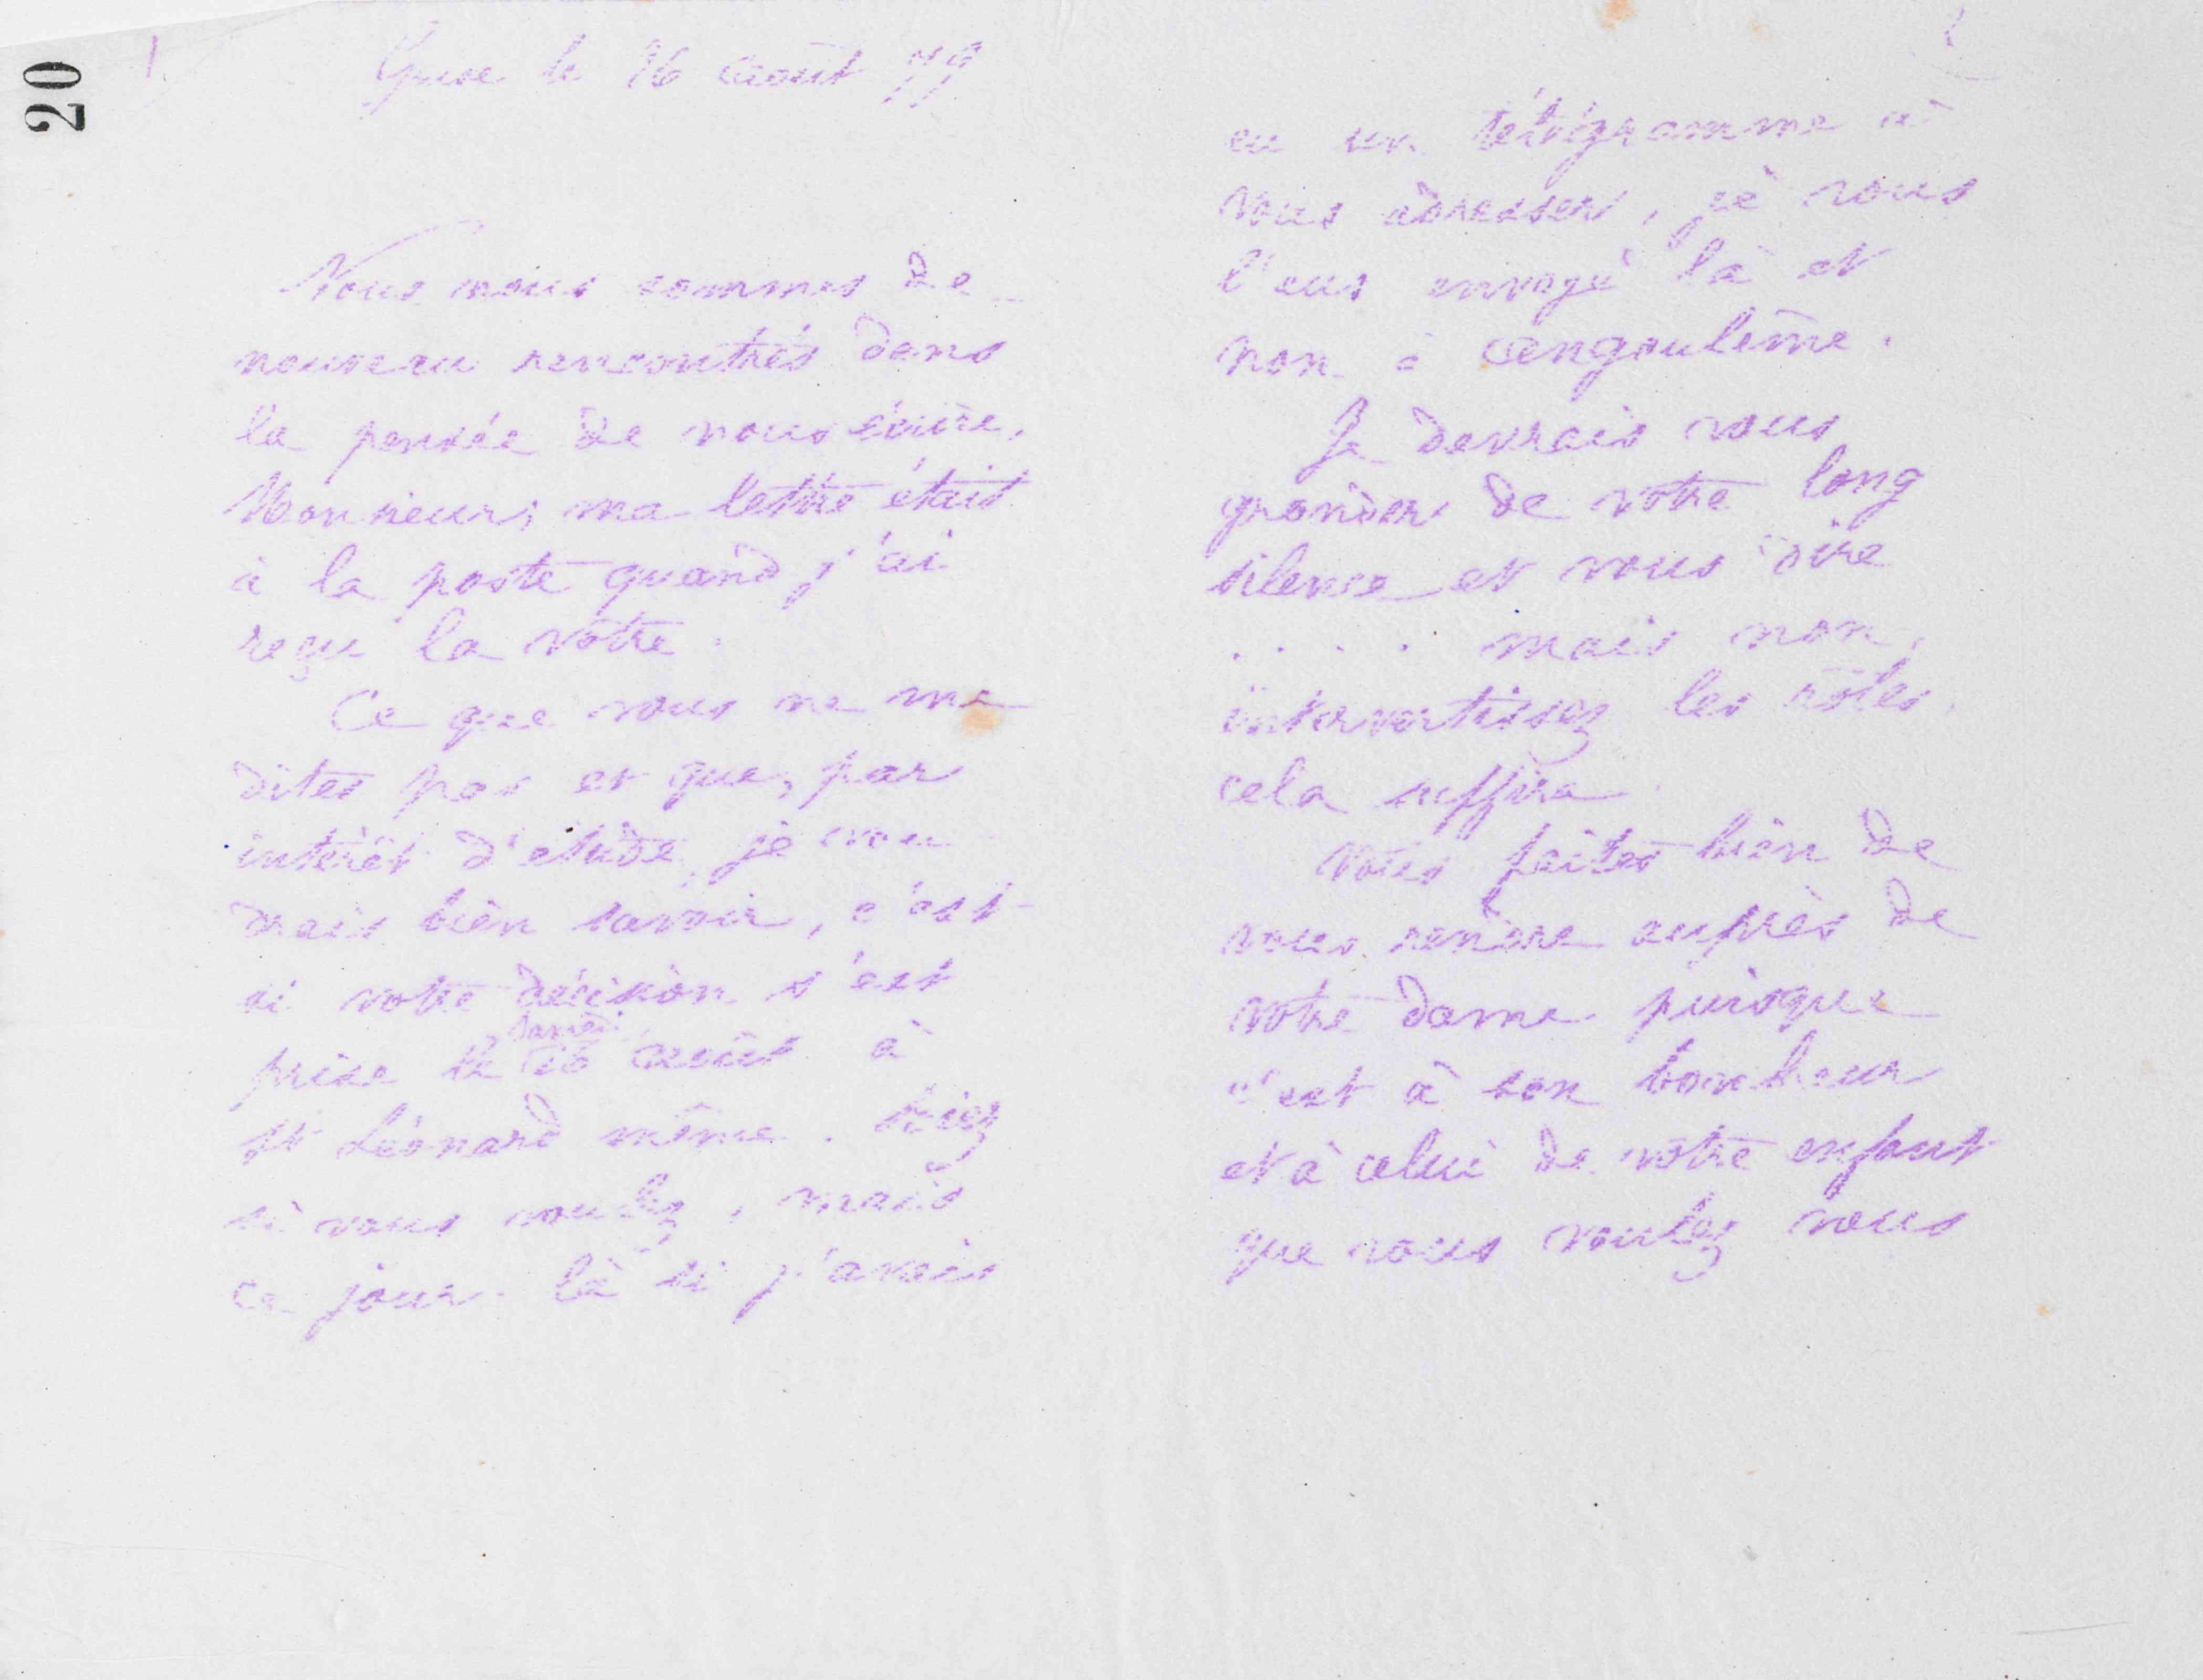 20
1
Guise le 16 août 79
Nous nous sommes de
nouveau rencontrés dans
la pensée de nous écrire,
Monsieur; ma lettre était
à la poste quand j'ai
reçu la vôtre.
Ce que vous ne me
dites pas et que, par
intérêt d'étude, je vou-
drais bien savoir, c'est
si votre décision s'est
prise le samedi août à
St Léonard même. Riez
si vous voulez, mais
ce jour-là si j'avais
2
eu un télégramme à
vous adresser, je vous
l'eus envoyé là et
non à Angoulême.
Je devrais vous
gronder de votre long
silence et vous dire
. . . . mais non,
intervertissez les rôles,
cela suffira.
Vous faites bien de
vous rendre auprès de
votre dame puisque
c'est à son bonheur
et à celui de votre enfant
que vous voulez vous